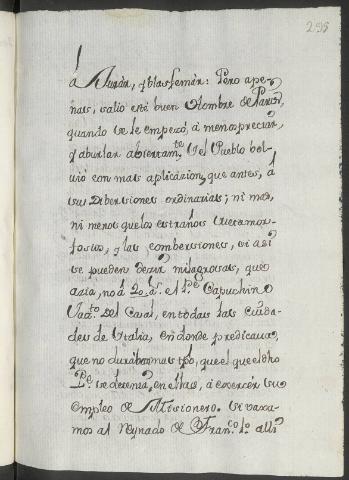 295
à Jurár, y blasfemár: Pero ape-
ñas, salió este buen Hombre de Paris,
quando se le empezó, à menospreciár,
y aburlar abiertam.te Y el Pueblo bol-
vió con mas aplicázion, que antes, à
sus Diberziones ordinarias; ni mas,
ni menos que los estraños metamor-
fosius, y las combersiones, si asi
se pueden dezir milagrosas, que
azia, no à 20. a.s el P.e Capuchino
Marco del Casal, en todas las Ciúda-
des de Ytalia, en donde predicava,
que no duraban mas tpo, que el que el dho
P.e se detenia, en ellas, à exercér su
empleo de Misionero. Si vaxa-
mos al Reynado de Fran.co 1.o alli